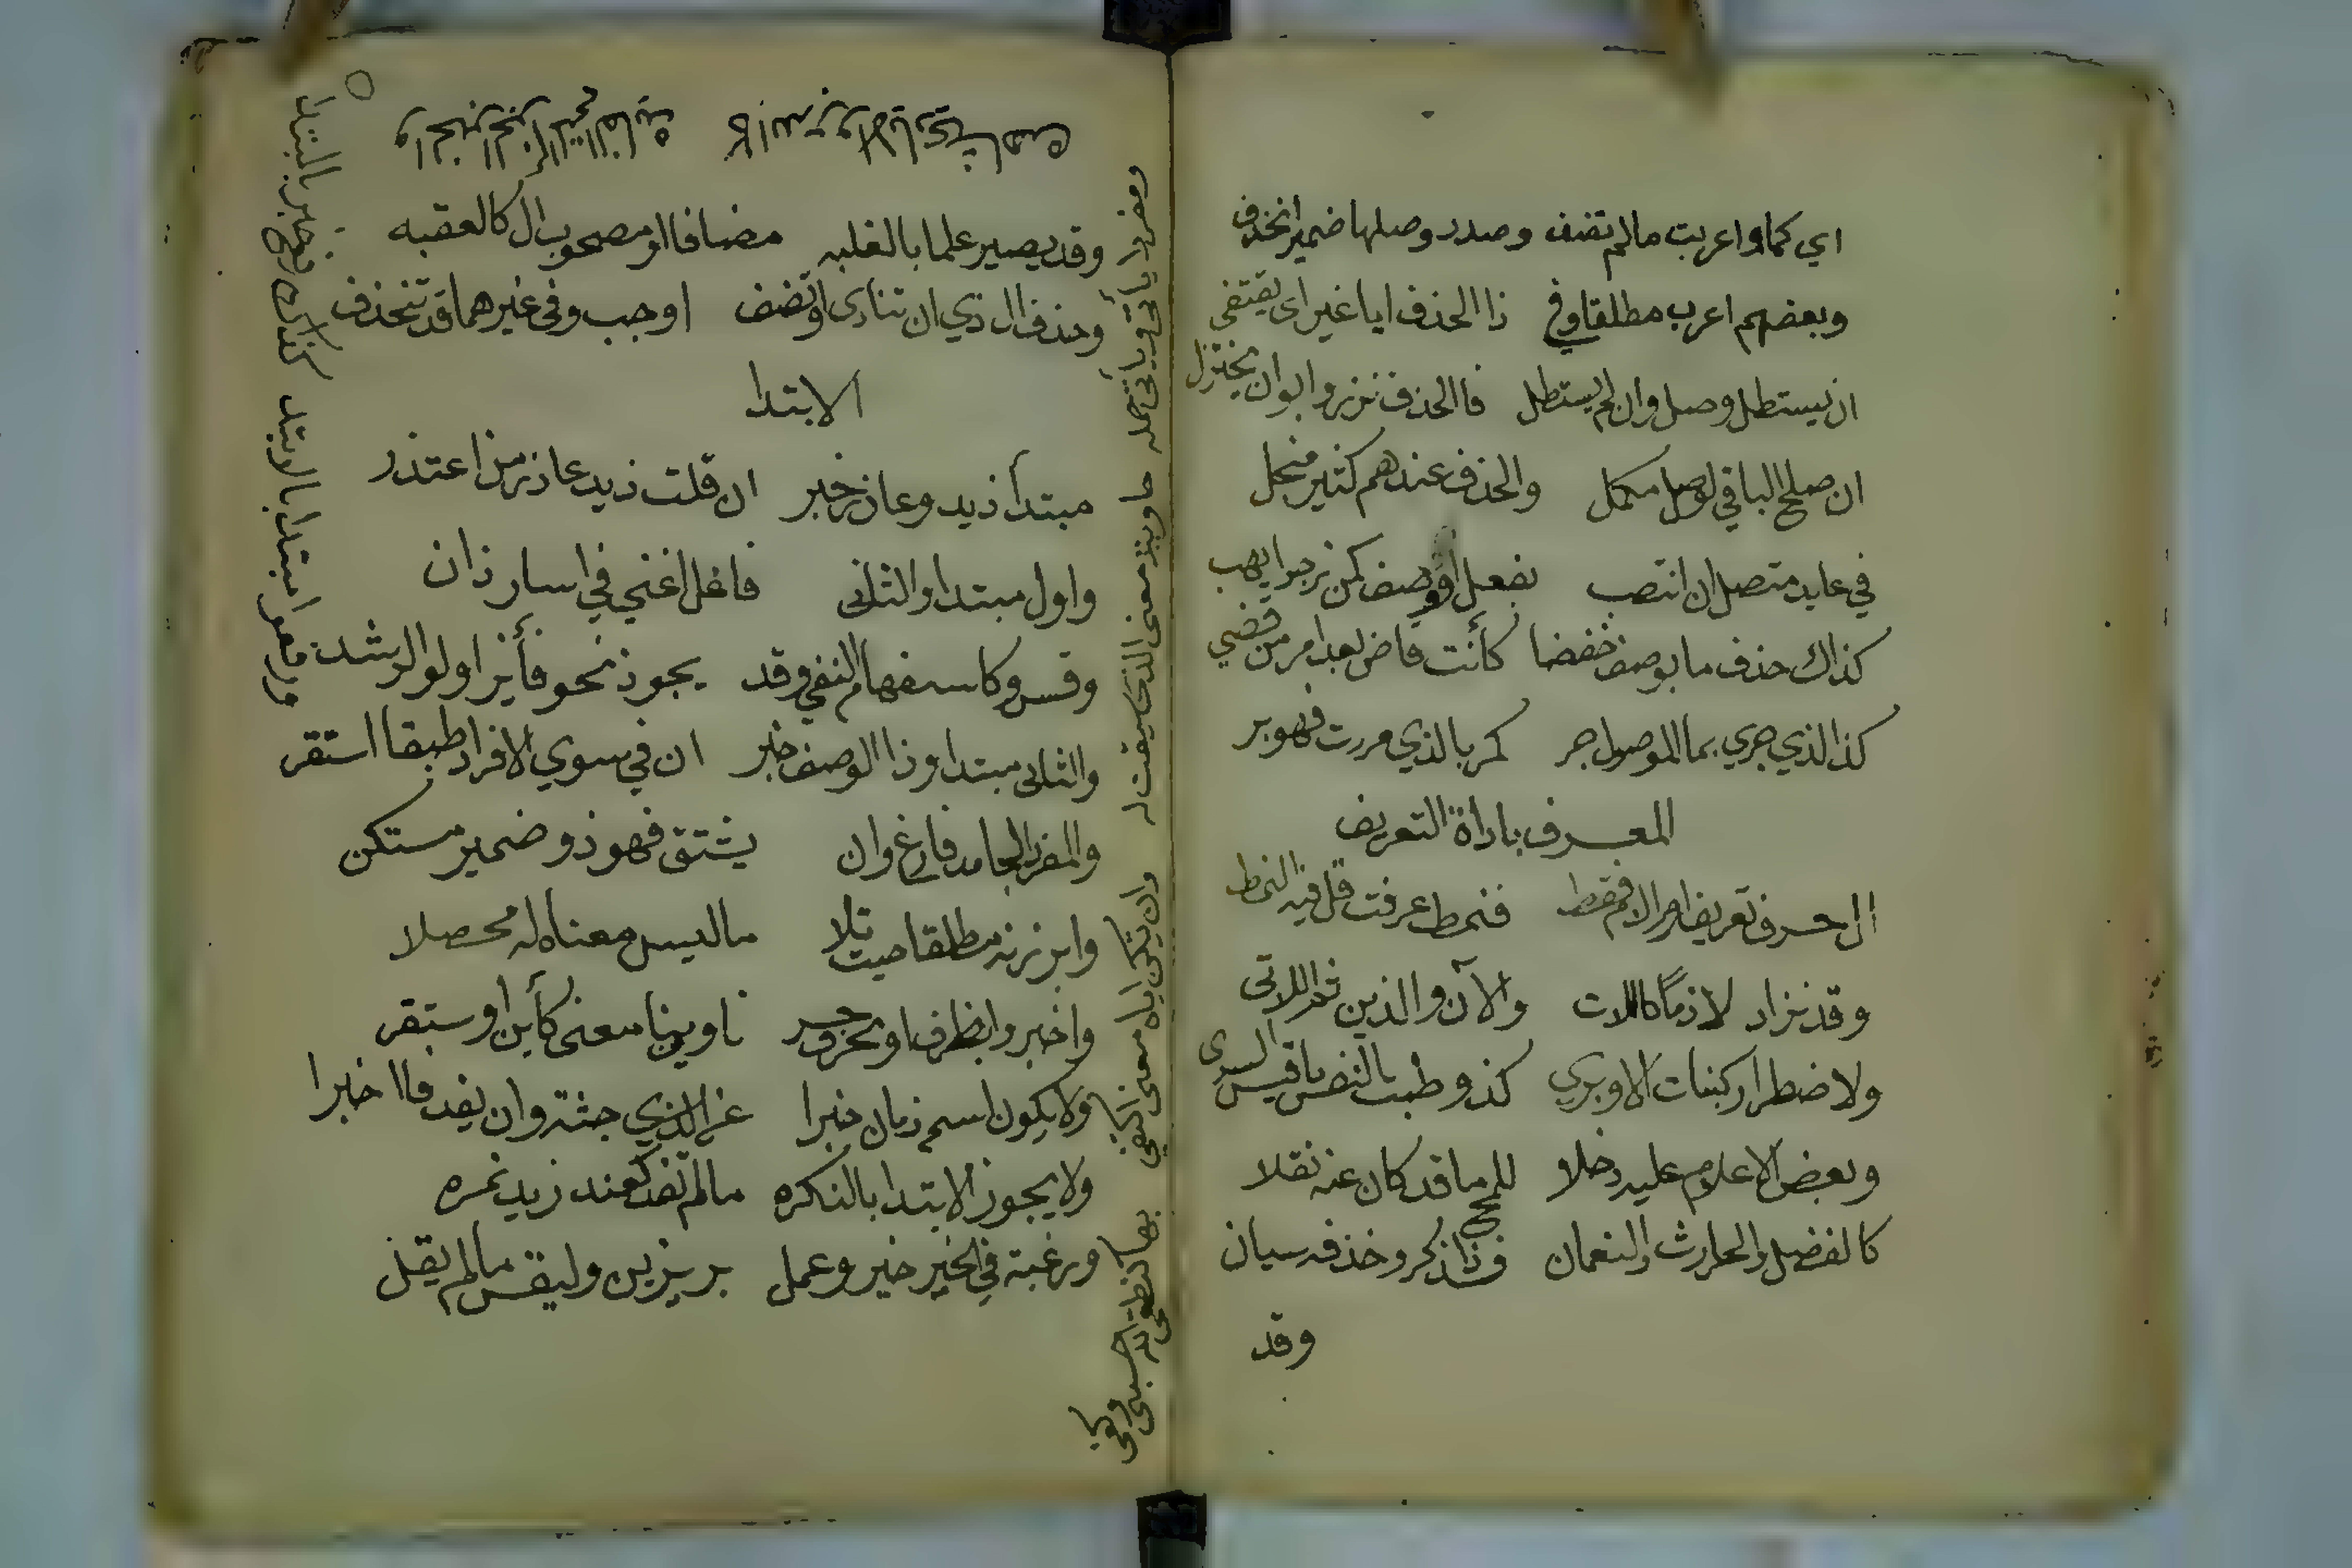 اي كما واعربت مالم تضف وصدر وصلها ضمير انحذف
وبعضهم اعرب مطلقا وفي ذا الحذف ايا غير اي يقتفي
ان يستطل وصل وان لم يستطل فالحذف نزر وابوا ان يختزل
ان صلح الباقي لوصل مكمل والحذف عندهم كثير منجل
في عايد متصل ان انتصب بفعل او وصف كمن نرجوا يهب
كذاك حذف ما بوصف خفضا كأنت قاض بعد امر من قضي
كذا الذي جري بما الموصول جر كمر بالذي مررت فهو بر
المعرف باداة التعريف
ال حرف تعريف او الام فقط فنمط عرفت قل فيه النمط
وقد نزاد لازمًا كاللات والآن والذين ثم اللاتي
ولاضطرار كبنات الاوبري كذ وطبت النفس يا قيس السري
وبعض الاعلام عليه دخلا للمح ما قد كان عنه نقلا
كالفضل والحارث والنعمان فذكر ذا وحذفه سيان
وقد
وقد يصير علما بالغلبه مضافا او مصحوب ال كالعقبه
وحذف ال ذي ان تنادي او تضف اوجب وفي غيرهما قد تنحذف
الابتدا
مبتدأ زيد وعاذر خبر ان قلت زيد عاذر من اعتذر
واول مبتدا والثاني فاعل اغني في اسار ذان
وقس وكاستفهام النفي وقد يجوز نحو فأيز اولوا الرشد
والثاني مبتدا وذا الوصف خبر ان في سوي الافراد طبقا استقر
ومفردا يأتي ويأتي جمله حاوية معنى الذي سيقت له
وان تكن اياه معنى اكتفي بها كنطقي الله حسبي وكفى
والمفرد الجامد فارغ وان يشتق فهو ذو ضمير مستكن
وابرزنه مطلقا حيث تلا ما ليس معناه له محصلا
واخبروا بظرف او بحرف جر ناوين معنى كأين او ستقر
ولا يكون اسم زمان خبرا عن الذي جثة وان يفد فاخبرا
ولا يجوز الابتدا بالنكره مالم تفد كعند زيد نمره
ورغبة في الخير خير وعمل بر يزين وليقس مالم يقل
ورفعوا مبتدا بالابتدا كذاك رفع خبر بالمبتدا